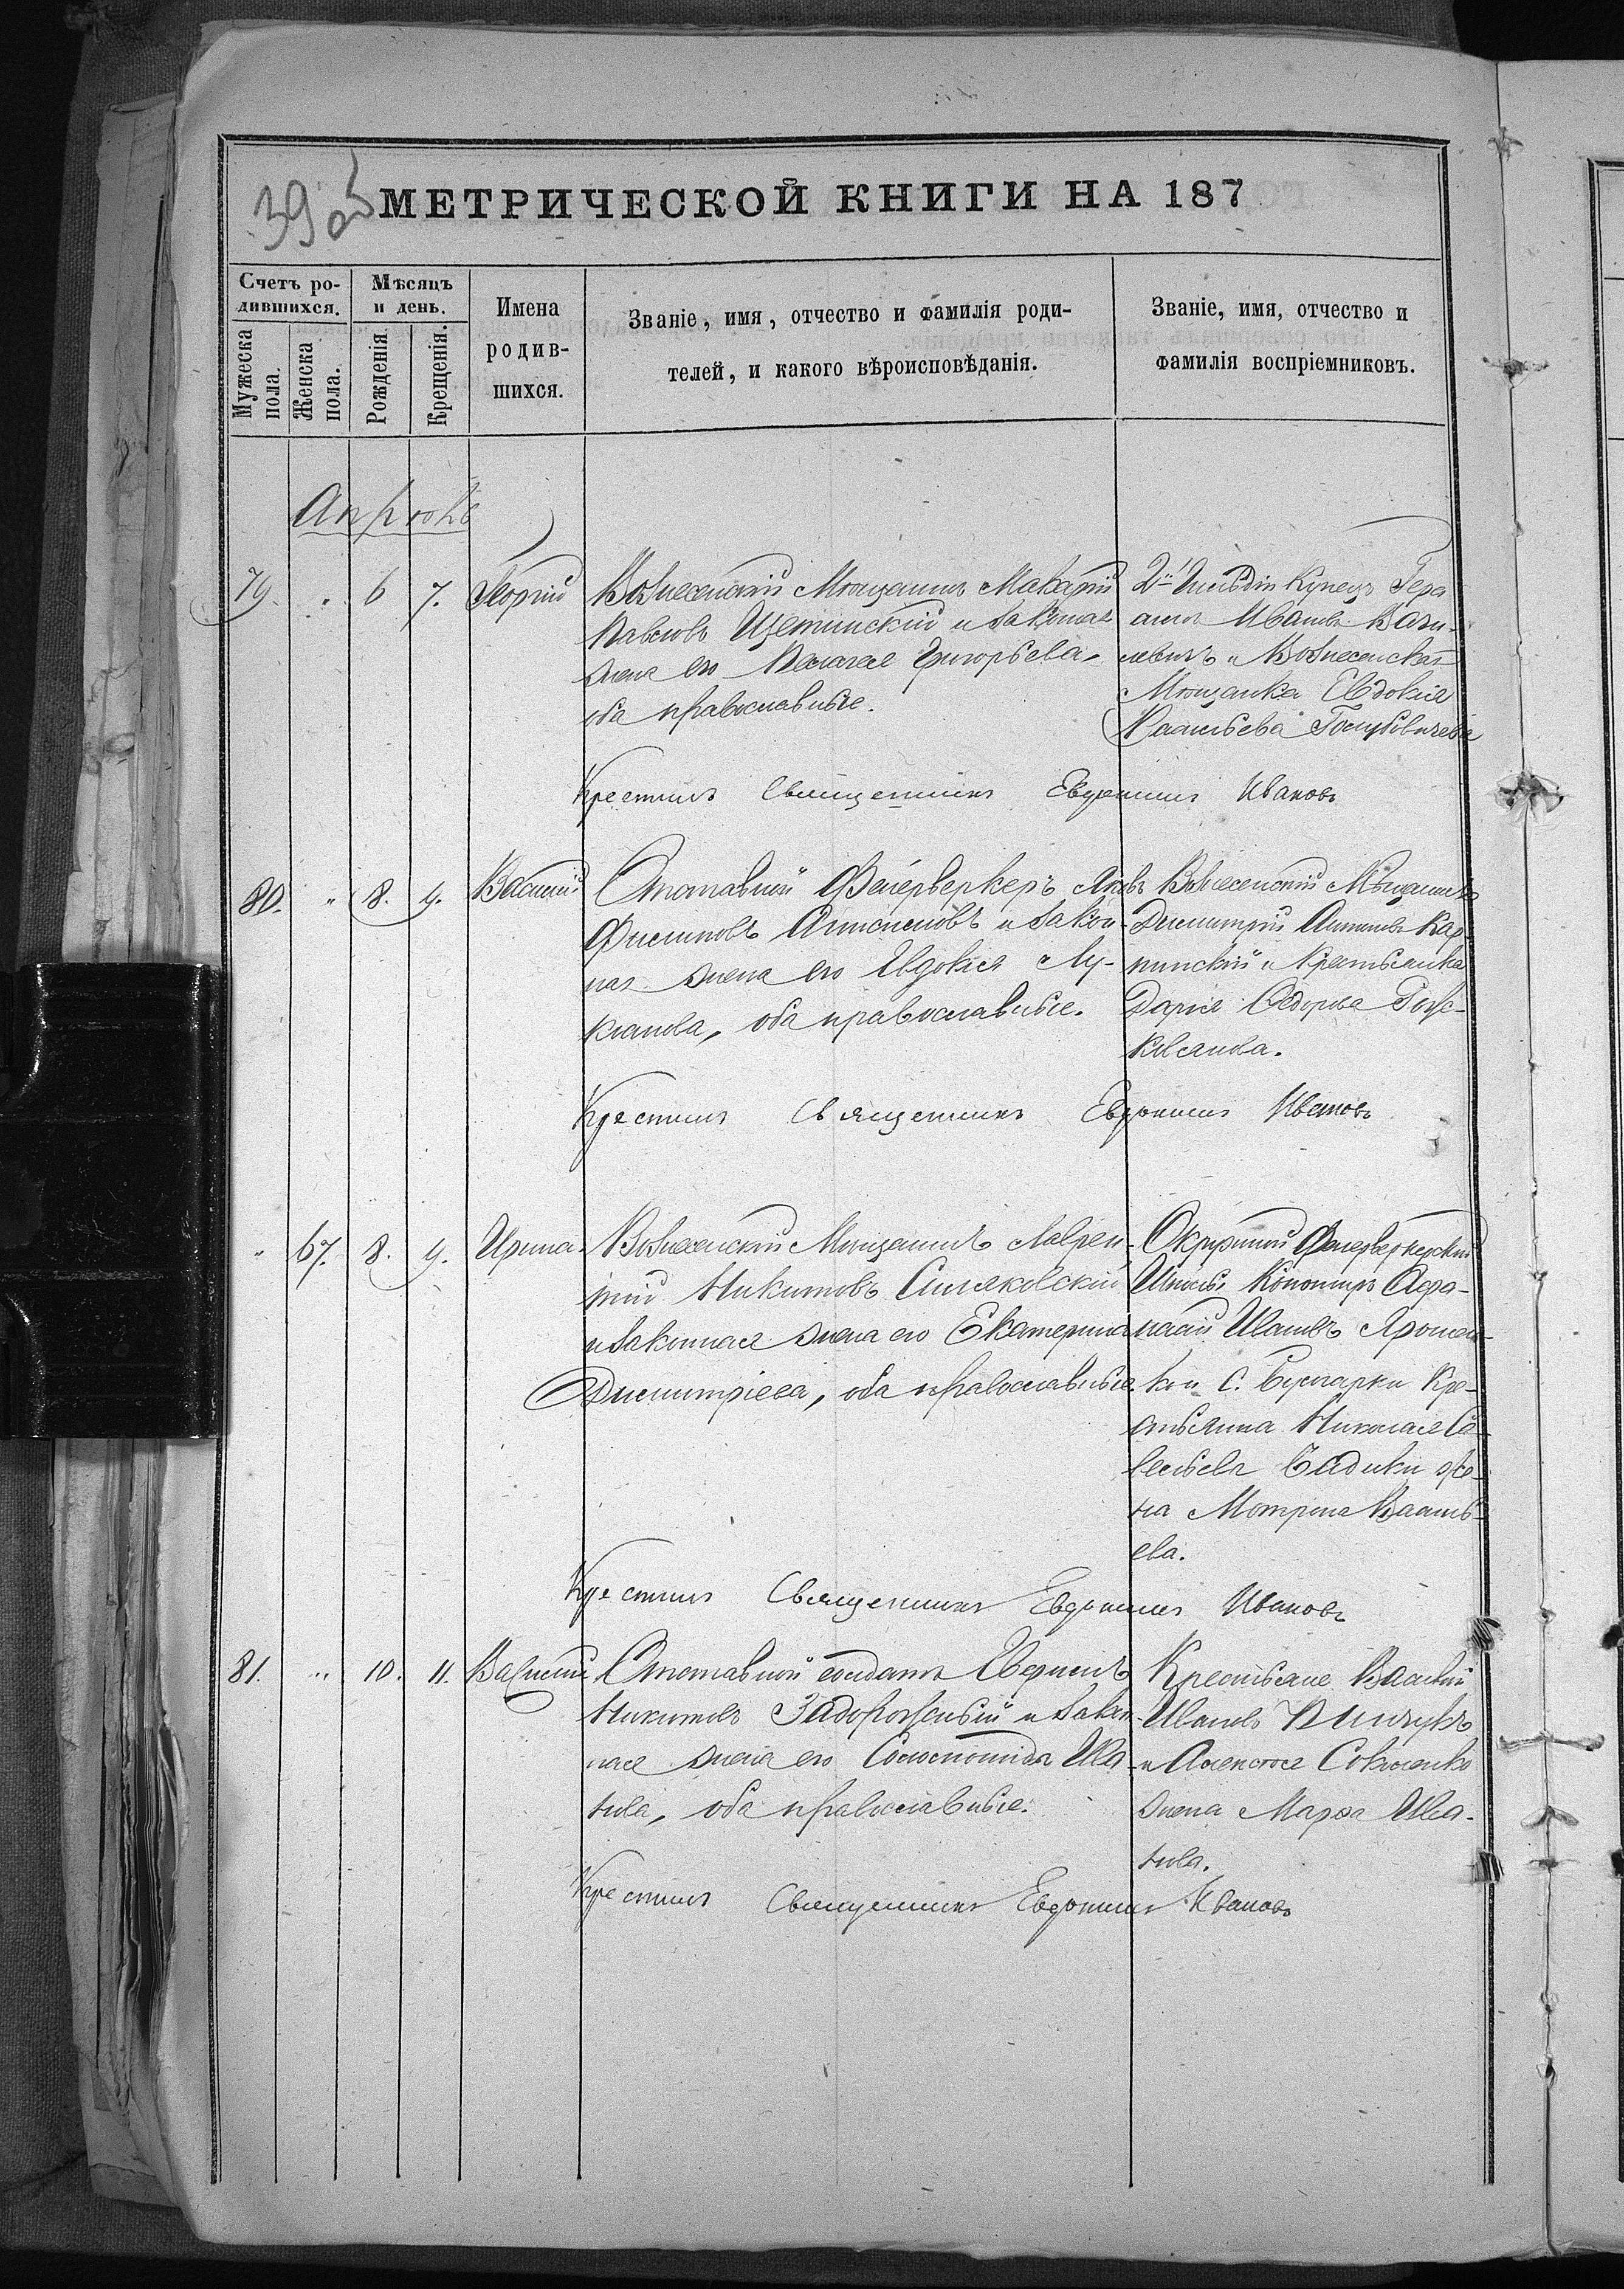 39об
МЕТРИЧЕСКОЙ КНИГИ НА 187
Счетъ ро-
дившихся.
Мѣсяцъ
и день.
Мужеска
пола.
Женска
пола.
Рожденія
Крещенія.
Имена
родив-
шихся.
Званіе, имя, отчество и фамилія роди-
телей, и какого вѣроисповѣданія.
Званіе, имя, отчество и
фамилія воспріемниковъ.
Апрѣль
79. " 6 7. Георгій
Вознесенскій Мѣщанинъ Макарій
Павловъ Щетинскій и законная
жена его Пелагея Григорьева,
оба православные.
2й Гильдіи Купецъ Гера
симъ Ивановъ
и Вознесенская
Мѣщанка Евдокія
Васильева
Крестилъ Священникъ Евдокимъ Ивановъ
80. " 8. 9. Василій
Отставный Фейерверкеръ Яковъ
Филиповъ и закон-
ная жена его Евдокія Лу-
кіанова, оба православные.
Вознесенскій Мѣщанинъ
Димитрій Антоновъ Кар
пинскій и Крестьянка
Дарія Ѳедорова
Крестилъ Священникъ Евдокимъ Ивановъ
" 67. 8. 9. Ирина
Вознесенскій Мѣщанинъ Лаврен-
тій Никитовъ
и законная жена его Екатерина
Димитріева, оба православные.
Окружной Фейерверкерской
Школы Афа-
насій Ивановъ Ярошен-
ко и С. Кре-
стьянина Николая Са-
вельева же-
на Мотрона Василь-
ева.
Крестилъ Священникъ Евдокимъ Ивановъ
81. " 10. 11. Василій
Отставной солдатъ
Никитовъ Задорожный и закон-
ная жена его Ива-
нова, оба православные.
Крестьяне Василій
Ивановъ
и Алексѣя
жена Марфа Ива-
нова.
Крестилъ Священникъ Евдокимъ Ивановъ